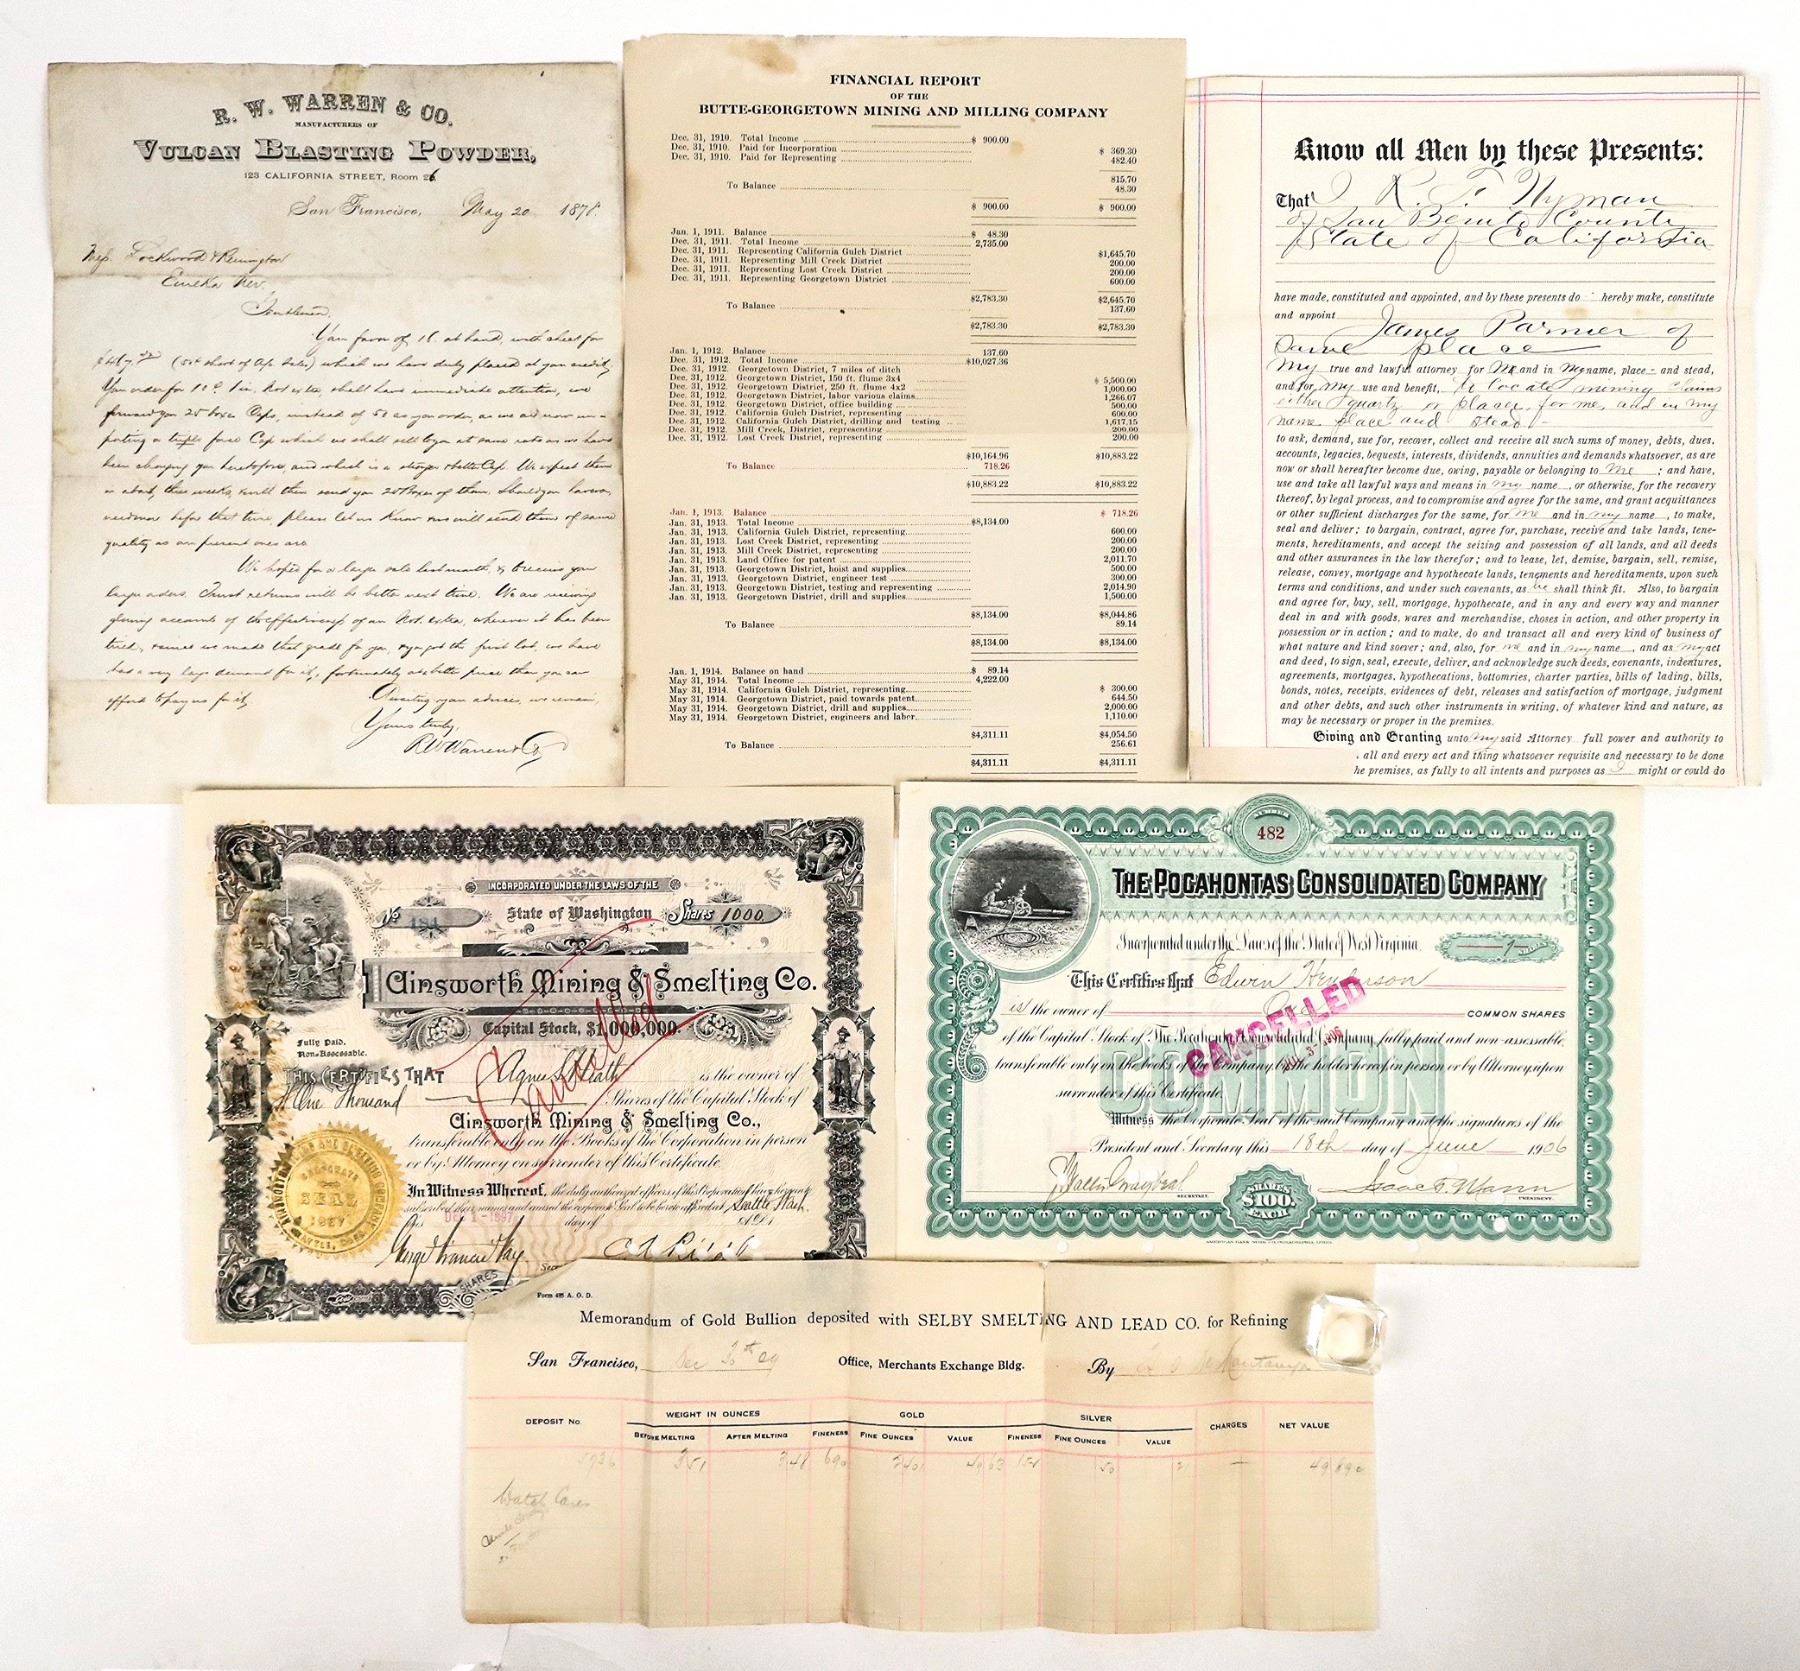 R. W. WARREN & CO.
MANUFACTURERS OF
VULCAN BLASTING POWDER,
123 CALIFORNIA STREET, Room 26
San Francisco, May 20 1878.
Lockwood & Remington
Eureka Nev.
Gentlemen.
Your favor of at hand, with check for
which we have duly placed at your credit
shall have immediate attention, we
forward you 25 boxes Caps, instead of 50 as you order, as we
a triple force Cap which we shall sell to you at same rate as we have
been charging you heretofore, and which is a stronger & better Cap. We expect them
in about three weeks, will then send you 25 Boxes of them. Should you
before that time, please let us know & we will send them of same
quality as our present ones are.
We hoped for a larger sale last month, & to receive your
larger orders. Trust returns will be better next time. We are receiving
glowing accounts of the effectiveness of our No. 1 extra, wherever it has been
tried, since we made that grade for you, & you got the first lot, we have
had a very large demand for it, fortunately at a better price than you can
afford to pay us for it.
Awaiting your advices, we remain,
Yours truly,
R W Warren & Co
FINANCIAL REPORT
OF THE
BUTTE-GEORGETOWN MINING AND MILLING COMPANY
Dec. 31, 1910. Total Income $ 900.00
Dec. 31, 1910. Paid for Incorporation $ 369.30
Dec. 31, 1910. Paid for Representing 482.40
815.70
To Balance 48.30
$ 900.00 $ 900.00
Jan. 1, 1911. Balance $ 48.30
Dec. 31, 1911. Total Income 2,735.00
Dec. 31, 1911. Representing California Gulch District $1,645.70
Dec. 31, 1911. Representing Mill Creek District 200.00
Dec. 31, 1911. Representing Lost Creek District 200.00
Dec. 31, 1911. Representing Georgetown District 600.00
$2,783.30 $2,645.70
To Balance 137.60
$2,783.30 $2,783.30
Jan. 1, 1912. Balance 137.60
Dec. 31, 1912. Total Income $10,027.36
Dec. 31, 1912. Georgetown District, 7 miles of ditch
Dec. 31, 1912. Georgetown District, 150 ft. flume 3x4 $ 5,500.00
Dec. 31, 1912. Georgetown District, 250 ft. flume 4x2 1,000.00
Dec. 31, 1912. Georgetown District, labor various claims 1,266.07
Dec. 31, 1912. Georgetown District, office building 500.00
Dec. 31, 1912. California Gulch District, representing 600.00
Dec. 31, 1912. California Gulch District, drilling and testing 1,617.15
Dec. 31, 1912. Mill Creek, District, representing 200.00
Dec. 31, 1912. Lost Creek, District, representing 200.00
$10,164.96 $10,883.22
To Balance 718.26
$10,883.22 $10,883.22
Jan. 1, 1913. Balance $ 718.26
Jan. 31, 1913. Total Income $8,134.00
Jan. 31, 1913. California Gulch District, representing 600.00
Jan. 31, 1913. Lost Creek District, representing 200.00
Jan. 31, 1913. Mill Creek District, representing 200.00
Jan. 31, 1913. Land Office for patent 2,011.70
Jan. 31, 1913. Georgetown District, hoist and supplies 500.00
Jan. 31, 1913. Georgetown District, engineer test 300.00
Jan. 31, 1913. Georgetown District, testing and representing 2,014.90
Jan. 31, 1913. Georgetown District, drill and supplies 1,500.00
$8,134.00 $8,044.86
To Balance 89.14
$8,134.00 $8,134.00
Jan. 1, 1914. Balance on hand $ 89.14
May 31, 1914. Total Income 4,222.00
May 31, 1914. California Gulch District, representing $ 300.00
May 31, 1914. Georgetown District, paid towards patent 644.50
May 31, 1914. Georgetown District, drill and supplies 2,000.00
May 31, 1914. Georgetown District, engineers and labor 1,110.00
$4,311.11 $4,054.50
To Balance 256.61
$4,311.11 $4,311.11
Know all Men by these Presents:
That I R. T. Nyman
of San Benito County
State of California
have made, constituted and appointed, and by these presents do hereby make, constitute
and appoint James Parmer of
Same place
My true and lawful attorney for Me and in My name, place and stead,
and for My use and benefit, to locate mining claims
either quartz or placer, for me, and in my
name place and stead
to ask, demand, sue for, recover, collect and receive all such sums of money, debts, dues,
accounts, legacies, bequests, interests, dividends, annuities and demands whatsoever, as are
now or shall hereafter become due, owing, payable or belonging to Me ; and have,
use and take all lawful ways and means in my name, or otherwise, for the recovery
thereof, by legal process, and to compromise and agree for the same, and grant acquittances
or other sufficient discharges for the same, for me and in my name, to make,
seal and deliver; to bargain, contract, agree for, purchase, receive and take lands, tene-
ments, hereditaments, and accept the seizing and possession of all lands, and all deeds
and other assurances in the law therefor; and to lease, let, demise, bargain, sell, remise,
release, convey, mortgage and hypothecate lands, tenements and hereditaments, upon such
terms and conditions, and under such covenants, as he shall think fit. Also, to bargain
and agree for, buy, sell, mortgage, hypothecate, and in any and every way and manner
deal in and with goods, wares and merchandise, choses in action, and other property in
possession or in action; and to make, do and transact all and every kind of business of
what nature and kind soever; and, also, for me and in my name, and as my act
and deed, to sign, seal, execute, deliver, and acknowledge such deeds, covenants, indentures,
agreements, mortgages, hypothecations, bottomries, charter parties, bills of lading, bills,
bonds, notes, receipts, evidences of debt, releases and satisfaction of mortgage, judgment
and other debts, and such other instruments in writing, of whatever kind and nature, as
may be necessary or proper in the premises.
Giving and Granting unto My said Attorney full power and authority to
all and every act and thing whatsoever requisite and necessary to be done
he premises, as fully to all intents and purposes as I might or could do
INCORPORATED UNDER THE LAWS OF THE
No 484 State of Washington Shares 1000
Ainsworth Mining & Smelting Co.
Capital Stock, $1,000,000.
Fully Paid.
Non-Assessable.
Cancelled
THIS CERTIFIES THAT Agnes Heath is the owner of
One Thousand Shares of the Capital Stock of
Ainsworth Mining & Smelting Co.,
transferable only on the Books of the Corporation in person
or by Attorney on surrender of this Certificate.
In Witness Whereof, the duly authorized officers of this Corporation have hereunto
subscribed their names and caused the corporate Seal to be hereto affixed at Seattle Wash.
this DEC 1-1897 day of A.D. 1
SEAL
1897
SHARES
NUMBER
482
THE POCAHONTAS CONSOLIDATED COMPANY
Incorporated under the Laws of the State of West Virginia.
1
This Certifies that Edwin Henderson
is the owner of One COMMON SHARES
of the Capital Stock of The Pocahontas Consolidated Company, fully paid and non-assessable,
transferable only on the books of the Company, by the holder hereof, in person or by Attorney, upon
surrender of this Certificate.
COMMON
CANCELLED
Witness the Corporate Seal of the said Company and the signatures of the
President and Secretary this 18th day of June 1906
SECRETARY. PRESIDENT.
SHARES
$100
EACH
Form 485 A. O. D.
Memorandum of Gold Bullion deposited with SELBY SMELTING AND LEAD CO. for Refining
San Francisco, Dec 30th 09 Office, Merchants Exchange Bldg. By
DEPOSIT No. WEIGHT IN OUNCES GOLD SILVER CHARGES NET VALUE
BEFORE MELTING AFTER MELTING FINENESS FINE OUNCES VALUE FINENESS FINE OUNCES VALUE
5936 3 51 3 48 690 2 401 49 63
Watch Cases